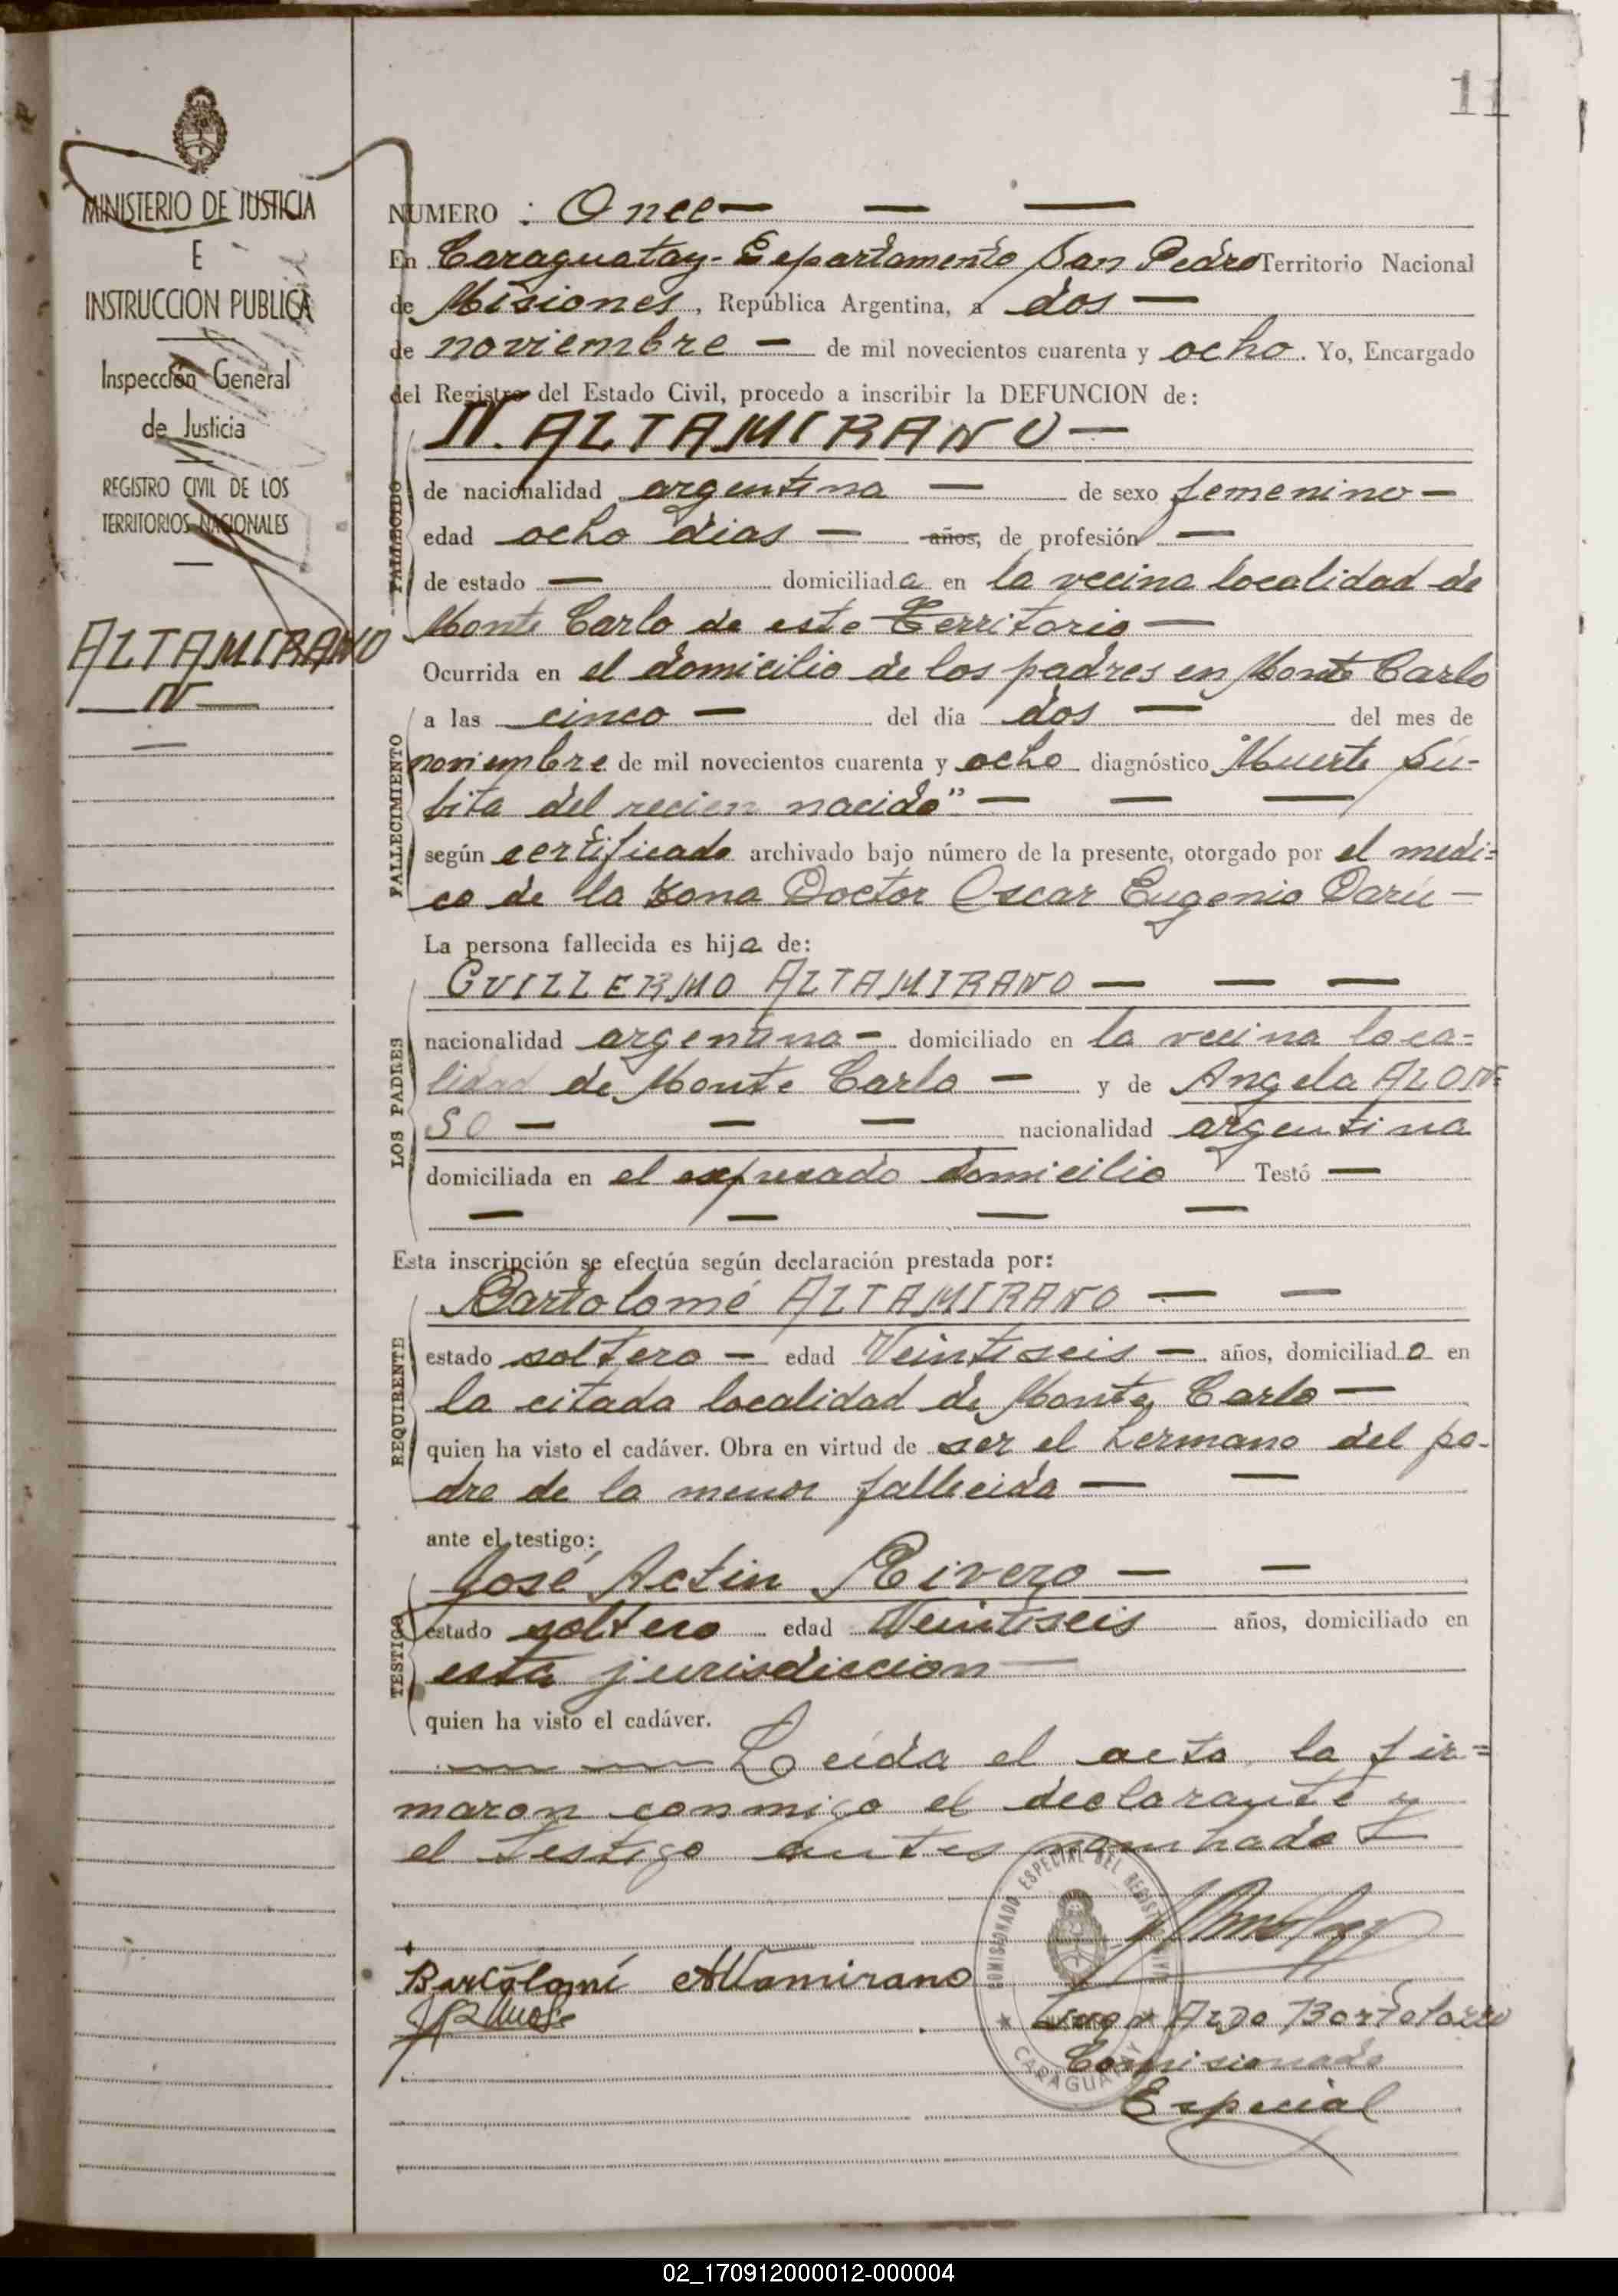 11
MINISTERIO DE JUSTICIA
E
INSTRUCCION PUBLICA
Inspección General
de Justicia
REGISTRO CIVIL DE LOS
TERRITORIOS NACIONALES
ALTAMIRANO
N
NUMERO : Once
En Caraguatay - Departamento San Pedro Territorio Nacional
de Misiones, República Argentina, a dos
de noviembre de mil novecientos cuarenta y ocho. Yo, Encargado
del Registro del Estado Civil, procedo a inscribir la DEFUNCION de:
N. ALTAMIRANO
FALLECIDO
de nacionalidad argentina de sexo femenino
edad ocho dias años, de profesión
de estado domiciliada en la vecina localidad de
Monte Carlo de este Territorio
Ocurrida en el domicilio de los padres en Monte Carlo
FALLECIMIENTO
a las cinco del día dos del mes de
noviembre de mil novecientos cuarenta y ocho diagnóstico "Muerte sú-
bita del recien nacido"
según certificado archivado bajo número de la presente, otorgado por el medi=
co de la zona Doctor Oscar Eugenio Darú
La persona fallecida es hija de:
LOS PADRES
GUILLERMO ALTAMIRANO
nacionalidad argentina domiciliado en la vecina loca=
lidad de Monte Carlo y de Angela ALON=
SO nacionalidad argentina
domiciliada en el expresado domicilio Testó
Esta inscripción se efectúa según declaración prestada por:
REQUIRENTE
Bartolomé ALTAMIRANO
estado soltero edad Veintiseis años, domiciliado en
la citada localidad de Monte Carlo
quien ha visto el cadáver. Obra en virtud de ser el hermano del pa-
dre de la menor fallecida
ante el testigo:
TESTIGO
José Actin Rivero
estado soltero edad Veintiseis años, domiciliado en
esta jurisdiccion
quien ha visto el cadáver.
Leida el acta la fir=
maron conmigo el declarante y
el testigo antes nombrado
COMISIONADO ESPECIAL DEL REGISTRO CIVIL
CARAGUATAY
Bartolomé Altamirano
Comisionado
Especial
02_170912000012-000004